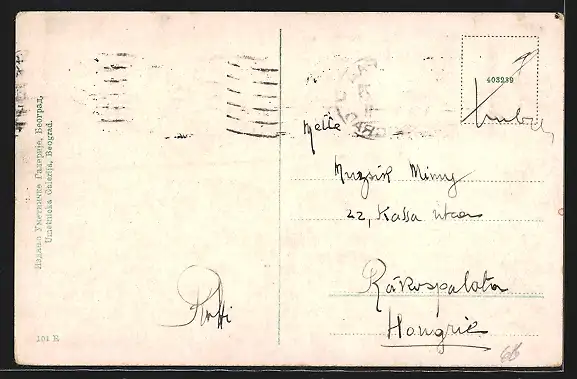 Издање Уметничке Галерије, Београд.
Umetnicka Galerija, Beograd.
101 E
403289
Melle
Muzsik Mimy
22, Kassa utca
Rákospalota
Hongrie
66